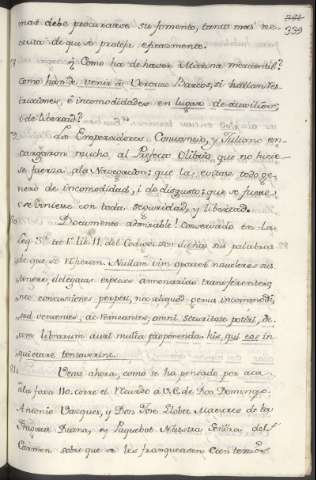 339
mas debe procurarse su fomento, tanto mas ne-
cesita de que se proteja eficazmente.
¿Como ha de haver Marina mercantil?
como han de venir a Veracruz Barcos, si hallan ve-
xaciones, é incomodidades en lugar de auxilios,
i de libertad?
Los Emperadores Constancio, y Juliano en-
cargaron mucho al Prefecto Olibrio, que no hicie-
se fuerza á la Navegacion: que les evitase todo ge-
nero de incomodidad, i de disgusto: que se fuese,
i viniese con toda seguridad, y libertad.
Documento admirable! Conservado en la
Ley 3ª tt. 1º lib. 11 del Codigo: son dichas sus palabras
de que se
Nullam vim oportet navicularios sus-
tinere delegatas species annonarias transferentes,
nec concussiones perpeti, nec aliquod genus incommodi,
sed venientes, ac remeantes, omni securitate potiri, de-
cem librarum auri multa proponenda his, qui eos in-
quietare tentaverint.
Vease ahora, como se ha pensado por acá:
á la foxa 110. corre el
á V.E. de Don Domingo
Antonio Vazquez, y Don José Llobet Maestres de la
Fragata Diana, y Paquebot Nuestra Señora del
Carmen sobre que se les franqueasen cien tercios